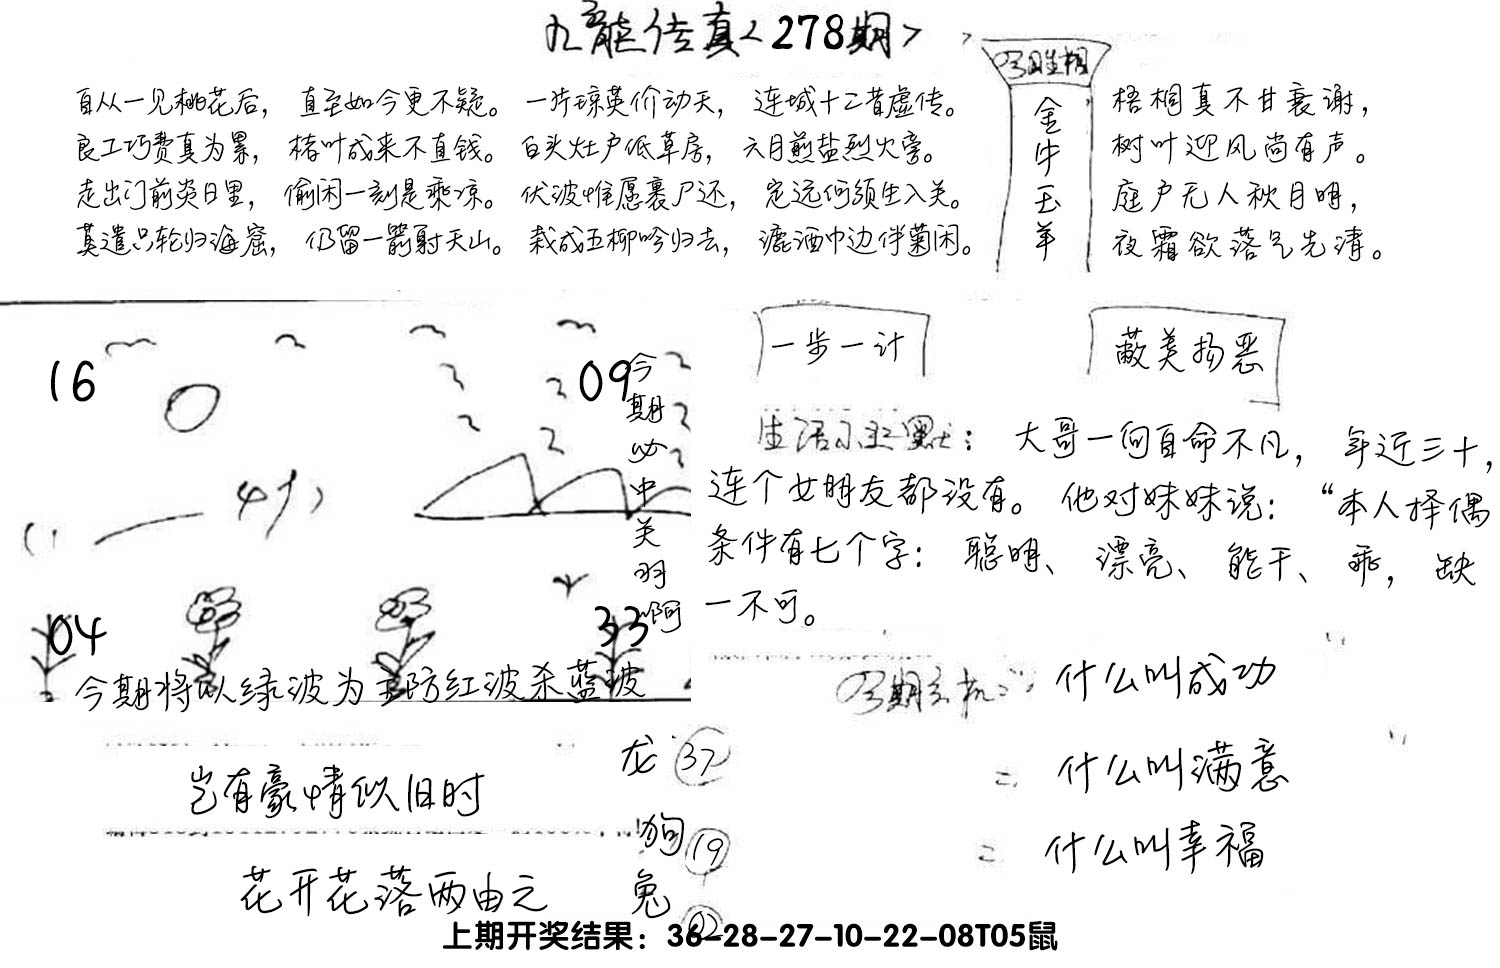 九龙传真<278期>
自从一见桃花后，直至如今更不疑。一片琼英价动天，连城十二昔虚传。
良工巧费真为累，楮叶成来不直钱。白头灶户低草房，六月煎盐烈火旁。
走出门前炎日里，偷闲一刻是乘凉。伏波惟愿裹尸还，定远何须生入关。
莫遣只轮归海窟，仍留一箭射天山。栽成五柳吟归去，漉酒巾边伴菊闲。
今日生相
金牛玉羊
梧桐真不甘衰谢，
树叶迎风尚有声。
庭户无人秋月明，
夜霜欲落气先清。
16
09
今期必中关羽啊
04
33
今期将以绿波为主防红波杀蓝波
一步一计
蔽美扬恶
生活小幽默：大哥一向自命不凡，年近三十，
连个女朋友都没有。他对妹妹说：“本人择偶
条件有七个字：聪明、漂亮、能干、乖，缺
一不可。
今期玄机：什么叫成功
= 什么叫满意
= 什么叫幸福
岂有豪情似旧时
花开花落两由之
龙 37
狗 19
兔 02
上期开奖结果：36-28-27-10-22-08T05鼠